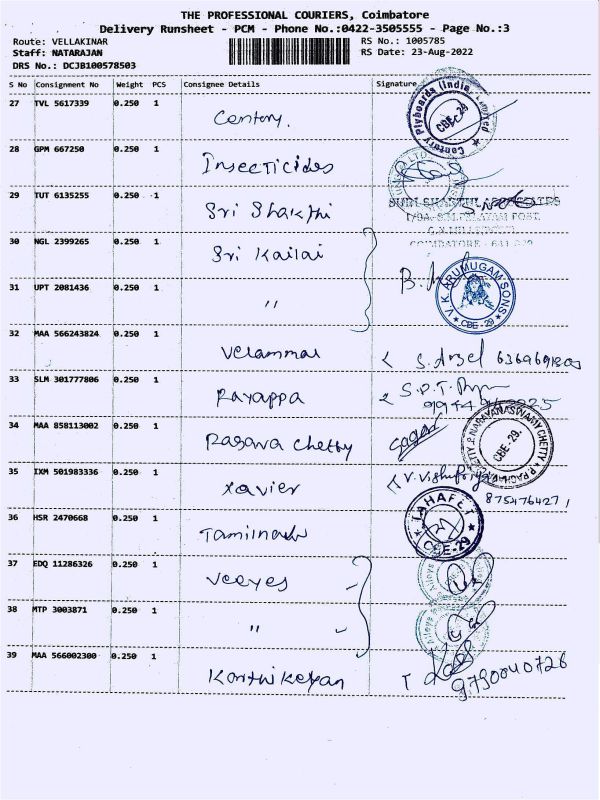 THE PROFESSIONAL COURIERS, Coimbatore
Delivery Runsheet - PCM - Phone No.:0422-3505555 - Page No.:3
Route: VELLAKINAR RS No.: 1005785
Staff: NATARAJAN RS Date: 23-Aug-2022
DRS No.: DCJB100578503
S No Consignment No Weight PCS Consignee Details Signature
27 TVL 5617339 0.250 1 Century. Century Plyboards (India) Limited CBE-29
28 GPM 667250 0.250 1 Insecticides
29 TUT 6135255 0.250 1 Sri Shakthi
COIMBATORE - 641 029
30 NGL 2399265 0.250 1 Sri Kailai
31 UPT 2081436 0.250 1 " V.K. ARUMUGAM SONS CBE-29
32 MAA 566243824 0.250 1 Velammal
33 SLM 301777806 0.250 1 Rayappa S.P.T.
34 MAA 858113002 0.250 1 Ragava Chetty CBE-29.
35 IXM 501983336 0.250 1 Xavier
36 HSR 2470668 0.250 1 Tamilnadu LAHAFET CBE-29
37 EDQ 11286326 0.250 1 Veeyes Alloys
38 MTP 3003871 0.250 1 " Alloys
39 MAA 566002300 0.250 1 Karthikeyan 9790040726